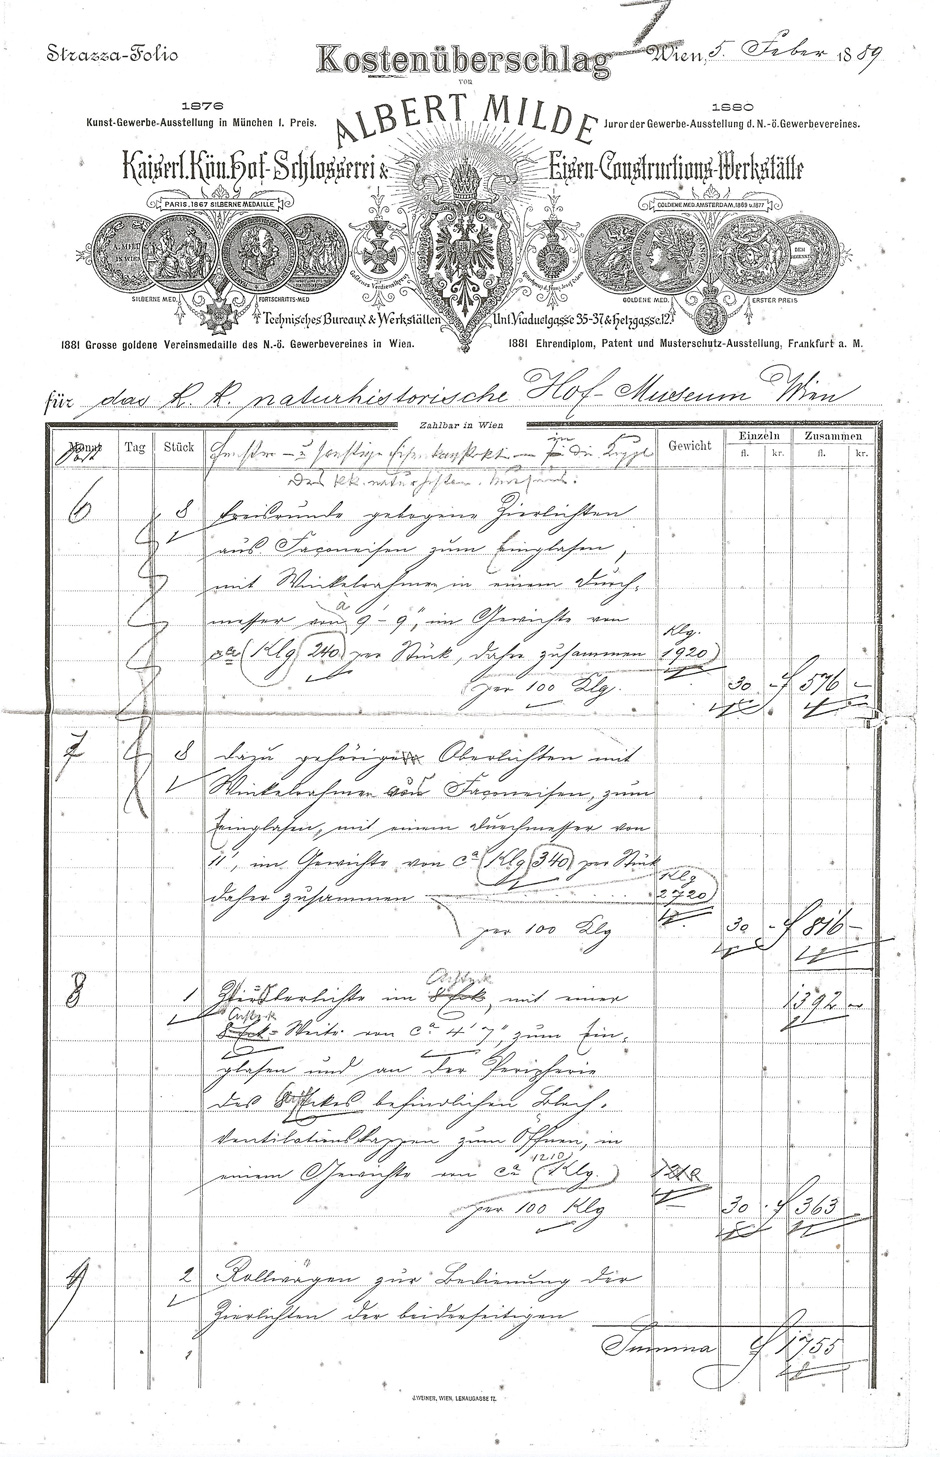 Strazza-Folio
Kostenüberschlag
Wien, 5. Feber 1889
von
ALBERT MILDE
1876
Kunst-Gewerbe-Ausstellung in München I. Preis.
1880
Juror der Gewerbe-Ausstellung d. N.-ö. Gewerbevereines.
Kaiserl. Kön. Hof-Schlosserei &
Eisen-Constructions-Werkstätte
PARIS. 1867 SILBERNE MEDAILLE
GOLDENE MED. AMSTERDAM, 1869 u. 1877
SILBERNE MED.
FORTSCHRITS-MED
GOLDENE MED.
ERSTER PREIS
Technisches Bureaux & Werkstätten
Unt. Viaductgasse 35-37 & Hetzgasse 12.
1881 Grosse goldene Vereinsmedaille des N.-ö. Gewerbevereines in Wien.
1881 Ehrendiplom, Patent und Musterschutz-Ausstellung, Frankfurt a. M.
für das k. k. naturhistorische Hof-Museum Wien
Zahlbar in Wien
Monat Tag Stück Gewicht Einzeln Zusammen
fl. kr. fl. kr.
Fenster- u. sonstige in die Kuppl
des kk. naturhistor. Museums.
6 8 kreisrunde gebogene Zierlichten
aus Façoneisen zum Einglasen,
mit Winkelrahmen in einem Durch-
messer von à 9' - 9", im Gewichte von
ca Klg 240 per Stück, daher zusammen Klg. 1920
per 100 Klg. 30 - f 576 -
7 8 dazu gehörige Oberlichten mit
Winkelrahmen aus Façoneisen, zum
Einglasen, mit einem Durchmesser von
11', im Gewichte von ca Klg 340 per Stück
daher zusammen Klg 2720
per 100 Klg 30 - f 816 -
8 1 Zier-Oberlichte im Achteck, mit einer 1392 -
Achteck- Weite von ca 4' 7", zum Ein-
glasen und an der Peripherie
des Achteckes befindlichen Blech-
Ventilationsklappen zum Öffnen, in
einem Gewichte von ca 1210 Klg.
per 100 Klg 30 - f 363
9 2 Rollwägen zur Bedienung der
Zierlichten der beiderseitigen
Summa f 1755
J. WEINER, WIEN, LENAUGASSE 12.